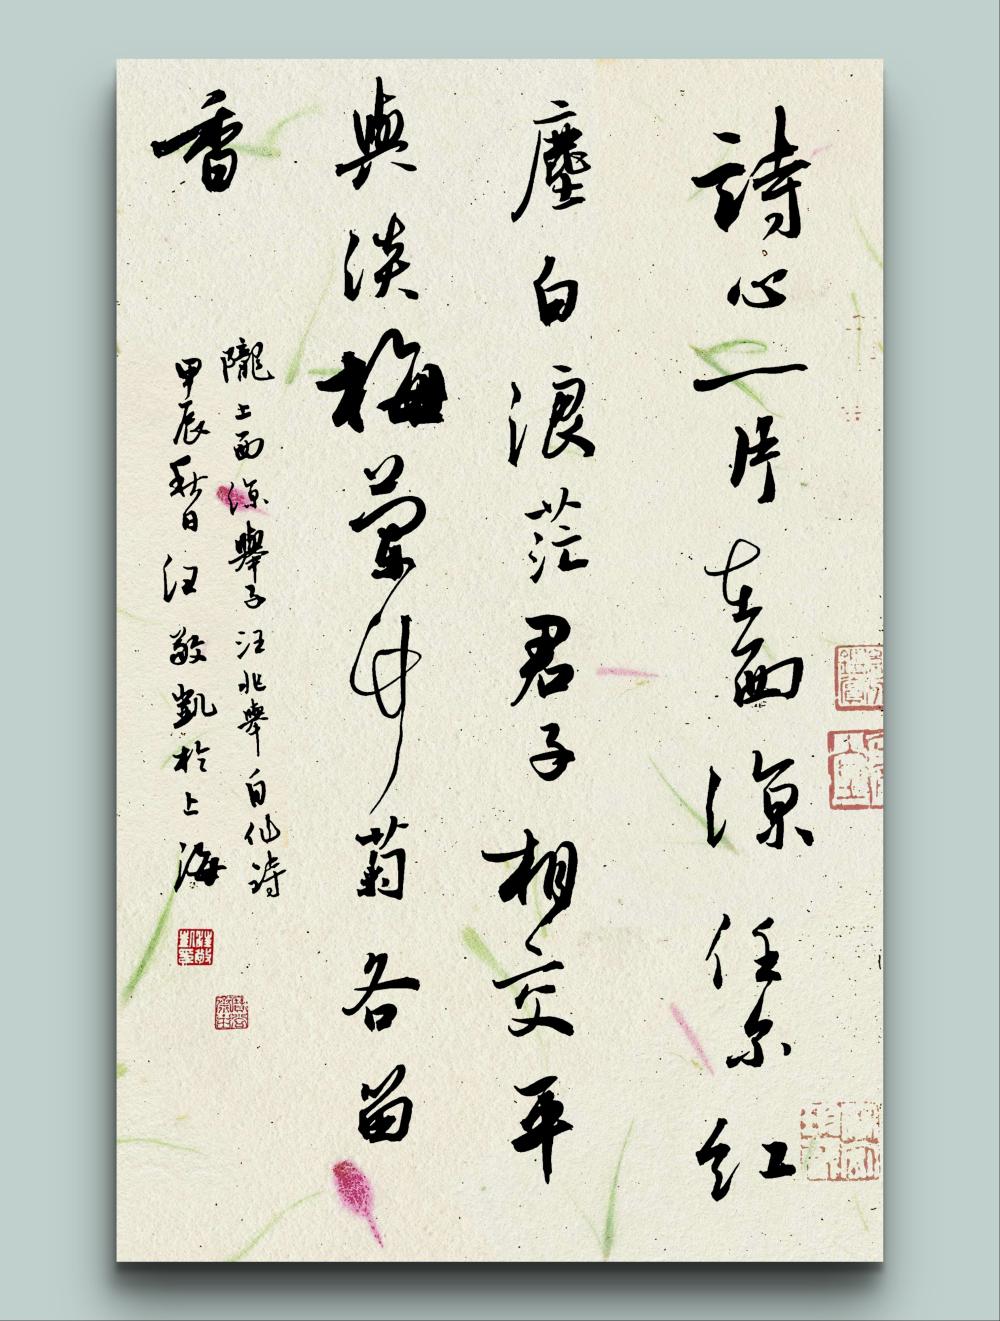 詩心一片在西涼任尔紅
塵白浪茫君子相交平
與淡梅蘭竹菊各留
香
隴上西涼舉子汪兆舉自仙詩
甲辰秋日汪敬凱於上海